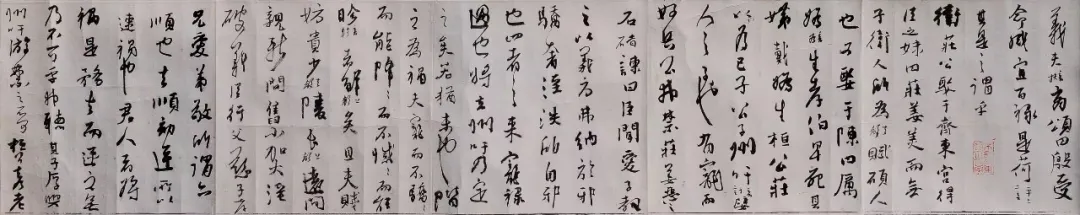 義夫商頌曰殷受
命咸宜百祿是荷
其是之謂乎
衛莊公娶于齊東宮得
臣之妹曰莊姜美而無
子衛人所為賦碩人
也又娶于陳曰厲
媯生孝伯早死其
娣戴媯生桓公莊
以為己子公子州吁
人之子也有寵而
好兵公弗禁莊姜惡之
石碏諫曰臣聞愛子教
之以義方弗納於邪
驕奢淫泆所自邪
也四者之來寵祿
過也將立州吁乃定
之矣若猶未也階
之為禍夫寵而不驕
而能降降而不憾憾而能
眕者鮮矣且夫賤
妨貴少陵長遠間
親新間舊小加大淫
破義臣行父慈子孝
兄愛弟敬所謂六
順也去順效逆所以
速禍也君人者將
禍是務去而速之無
乃不可乎弗聽其子厚與
州吁游禁之不可桓立乃老